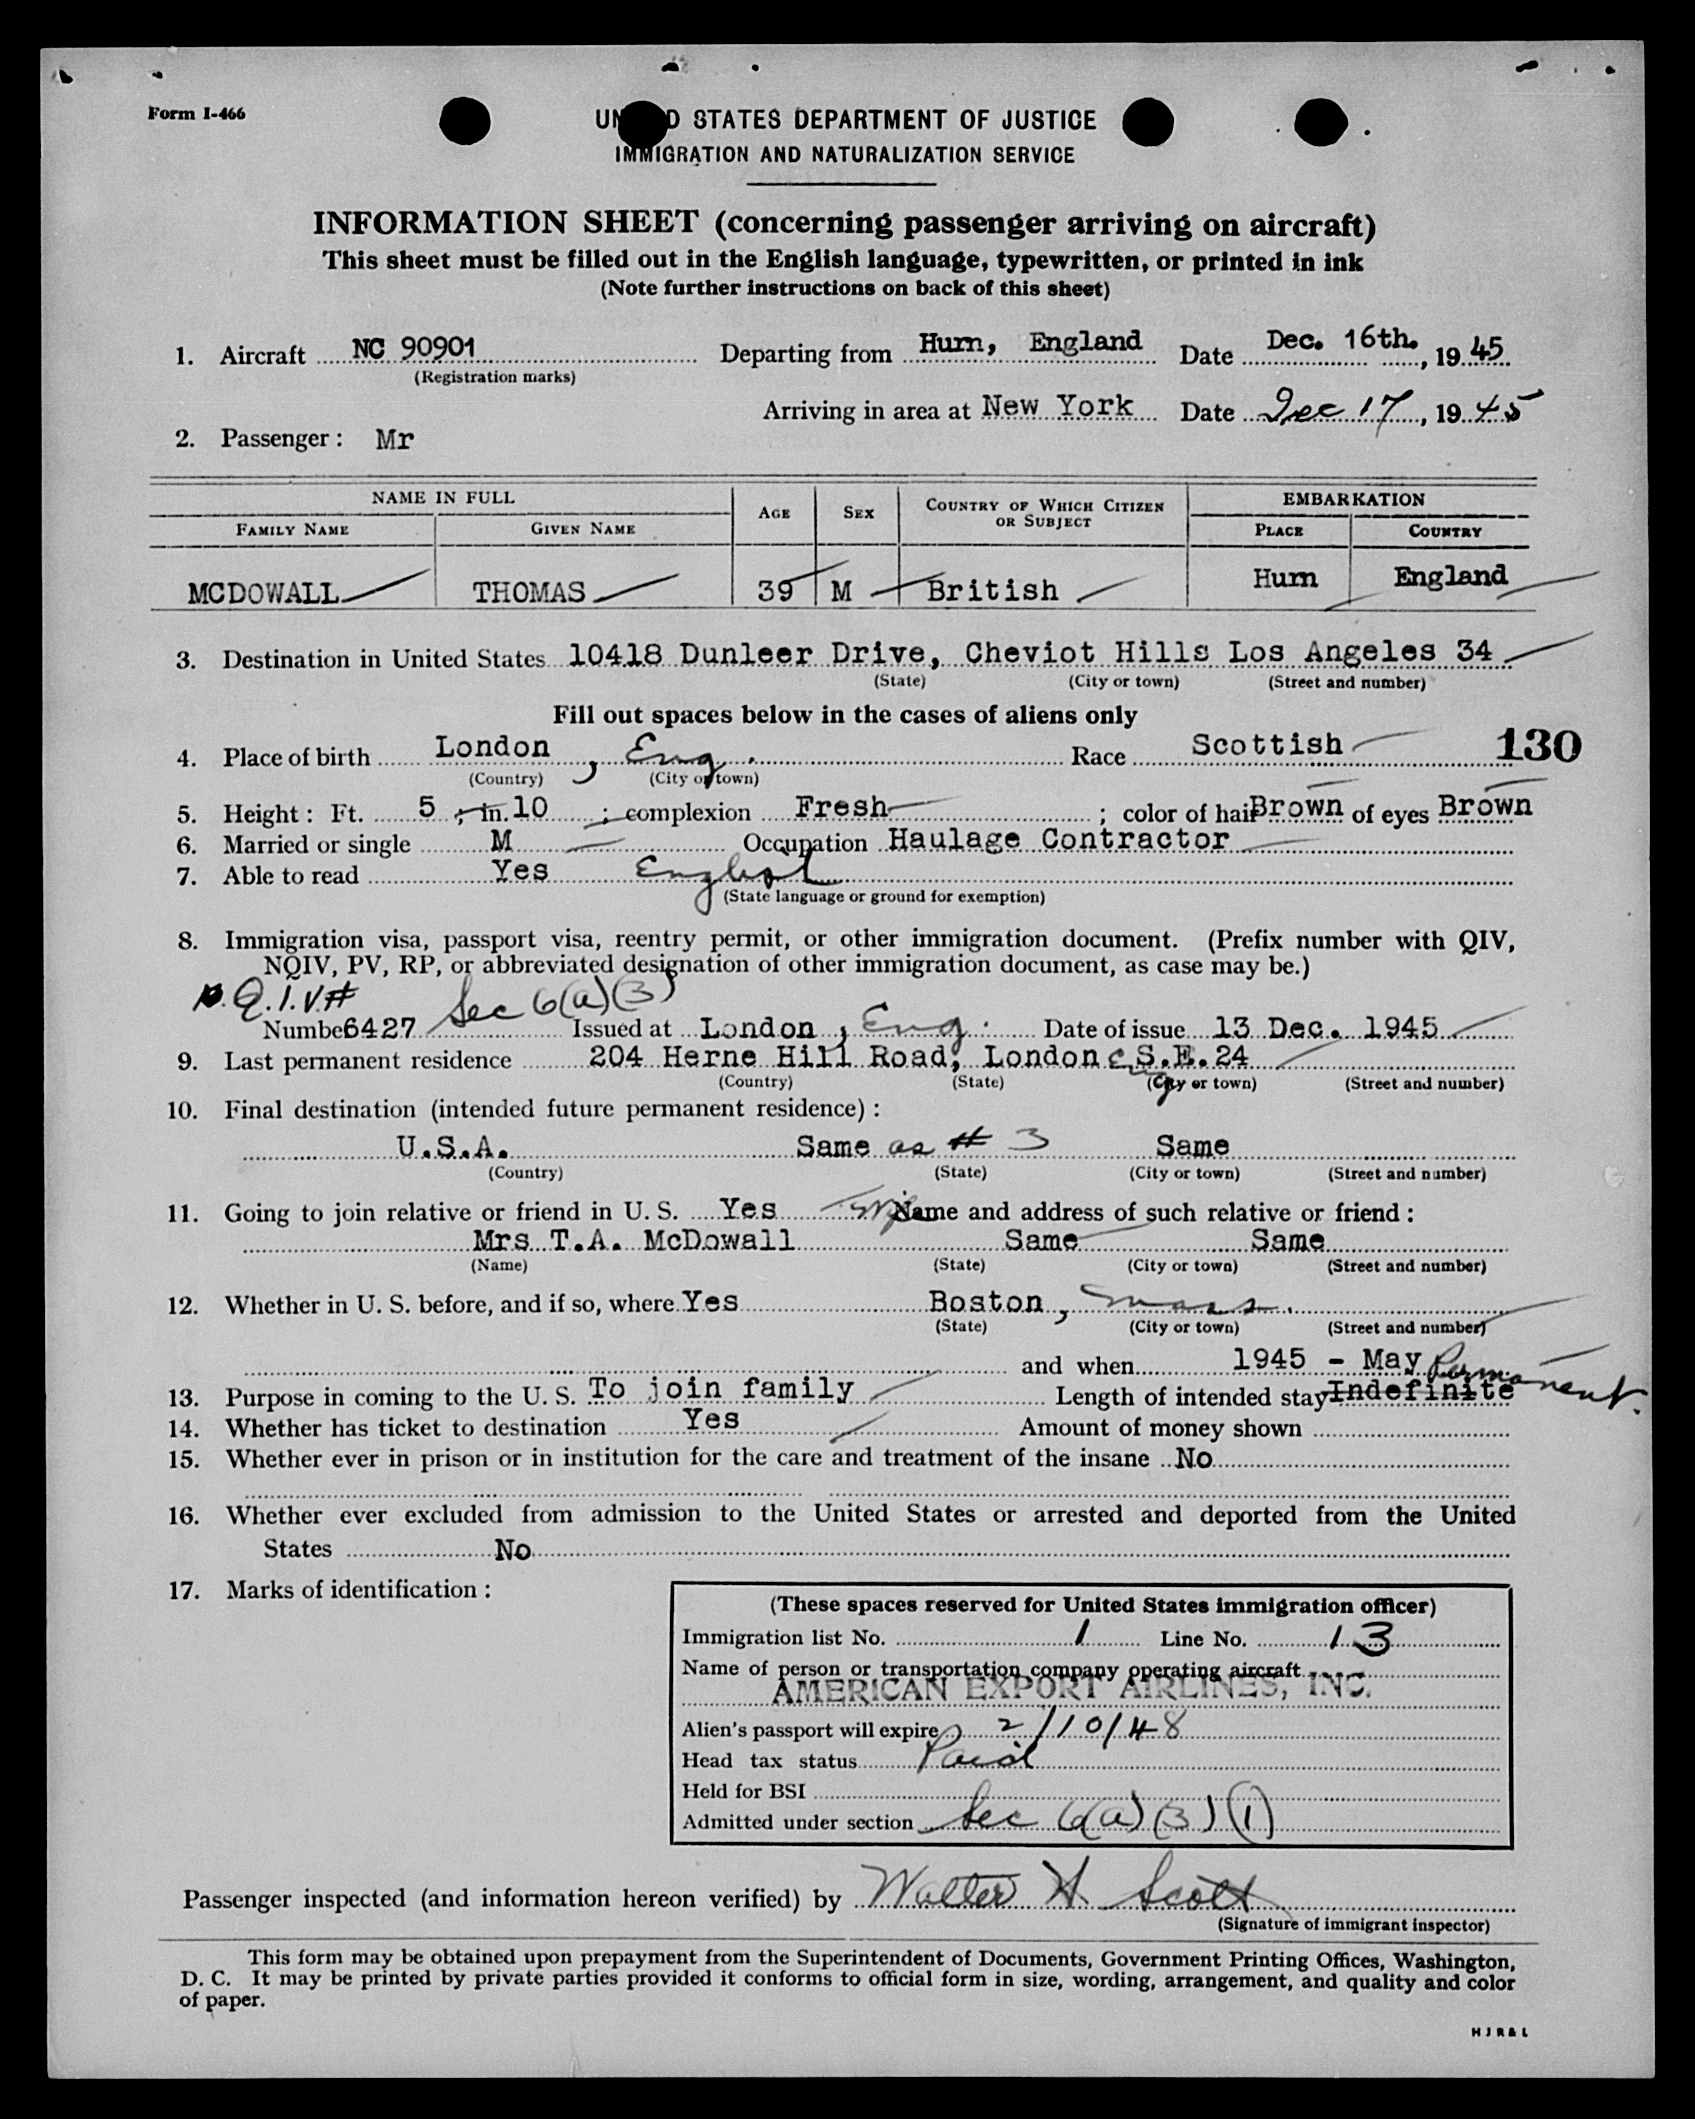 Form I-466
UNITED STATES DEPARTMENT OF JUSTICE
IMMIGRATION AND NATURALIZATION SERVICE
INFORMATION SHEET (concerning passenger arriving on aircraft)
This sheet must be filled out in the English language, typewritten, or printed in ink
(Note further instructions on back of this sheet)
1. Aircraft NC 90901 Departing from Hurn, England Date Dec. 16th., 1945
(Registration marks)
Arriving in area at New York Date Dec 17, 1945
2. Passenger: Mr
NAME IN FULL AGE SEX COUNTRY OF WHICH CITIZEN OR SUBJECT EMBARKATION
FAMILY NAME GIVEN NAME PLACE COUNTRY
MCDOWALL THOMAS 39 M British Hurn England
3. Destination in United States 10418 Dunleer Drive, Cheviot Hills Los Angeles 34
(State) (City or town) (Street and number)
Fill out spaces below in the cases of aliens only
4. Place of birth London, Eng. Race Scottish 130
(Country) (City or town)
5. Height: Ft. 5; in. 10; complexion Fresh; color of hair Brown of eyes Brown
6. Married or single M Occupation Haulage Contractor
7. Able to read Yes English
(State language or ground for exemption)
8. Immigration visa, passport visa, reentry permit, or other immigration document. (Prefix number with QIV,
NQIV, PV, RP, or abbreviated designation of other immigration document, as case may be.)
N. Q.I.V.# Sec 6(a)(3)
Number 6427 Issued at London, Eng. Date of issue 13 Dec. 1945
9. Last permanent residence 204 Herne Hill Road, London S.E.24 Eng
(Country) (State) (City or town) (Street and number)
10. Final destination (intended future permanent residence):
U.S.A. Same as # 3 Same
(Country) (State) (City or town) (Street and number)
11. Going to join relative or friend in U. S. Yes Wife Name and address of such relative or friend:
Mrs T.A. McDowall Same Same
(Name) (State) (City or town) (Street and number)
12. Whether in U. S. before, and if so, where Yes Boston, Mass.
(State) (City or town) (Street and number)
and when 1945 - May Permanent.
13. Purpose in coming to the U. S. To join family Length of intended stay Indefinite
14. Whether has ticket to destination Yes Amount of money shown
15. Whether ever in prison or in institution for the care and treatment of the insane No
16. Whether ever excluded from admission to the United States or arrested and deported from the United
States No
17. Marks of identification:
(These spaces reserved for United States immigration officer)
Immigration list No. 1 Line No. 13
Name of person or transportation company operating aircraft
AMERICAN EXPORT AIRLINES, INC.
Alien's passport will expire 2/10/48
Head tax status Paid
Held for BSI
Admitted under section Sec 6(a)(3)(1)
Passenger inspected (and information hereon verified) by Walter H. Scott
(Signature of immigrant inspector)
This form may be obtained upon prepayment from the Superintendent of Documents, Government Printing Offices, Washington,
D. C. It may be printed by private parties provided it conforms to official form in size, wording, arrangement, and quality and color
of paper.
H J R & L